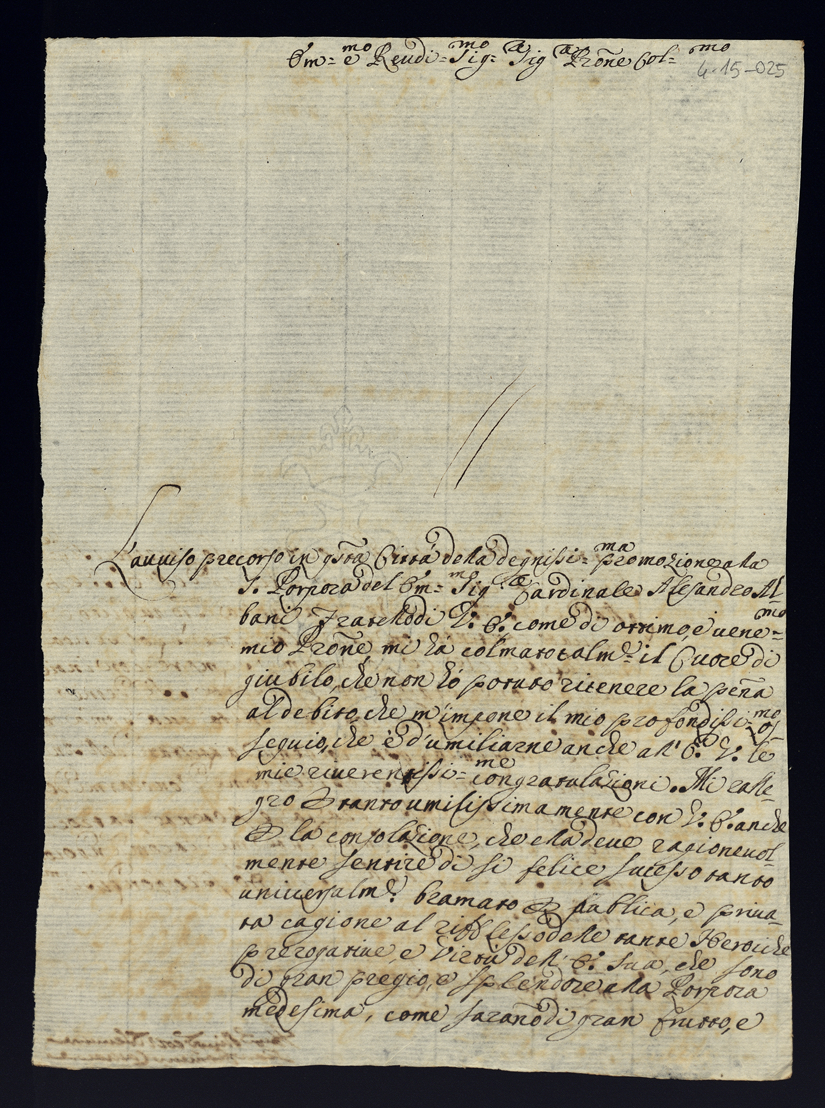 Em:mo e Reudi:mo Sig:r Sig:r Prõne Col:mo
4-15-025
L'auuiso precorso in qsta Città della degnissi:ma promozione alla
S. Porpora del Em:mo Sig:r Cardinale Alesandro Al-
bani Fratello di V: E: come di ottimo, e uene:mo
mio Prõne, mi hà colmato talm:e il Cuore di
giubilo, che non hò potuto ritenere la peña
al debito, che m'impone il mio profondissi:mo os-
sequio, che è d'umiliarne anche all' E: V: le
mie riuerentissi:me congratulazioni. Mi ralle-
gro per tanto umilissimamente con V: E: anche
per la consolazione, che ella deue ragioneuol-
mente sentire di sì felice sucesso tanto
uniuersalm:e bramato per publica, e priua-
ta cagione al riflesso delle tante Heroiche
prerogatiue, e Virtù dell' E: Sua, che sono
di gran pregio, e splendore alla Porpora
medesima, come sarañо di gran frutto, e